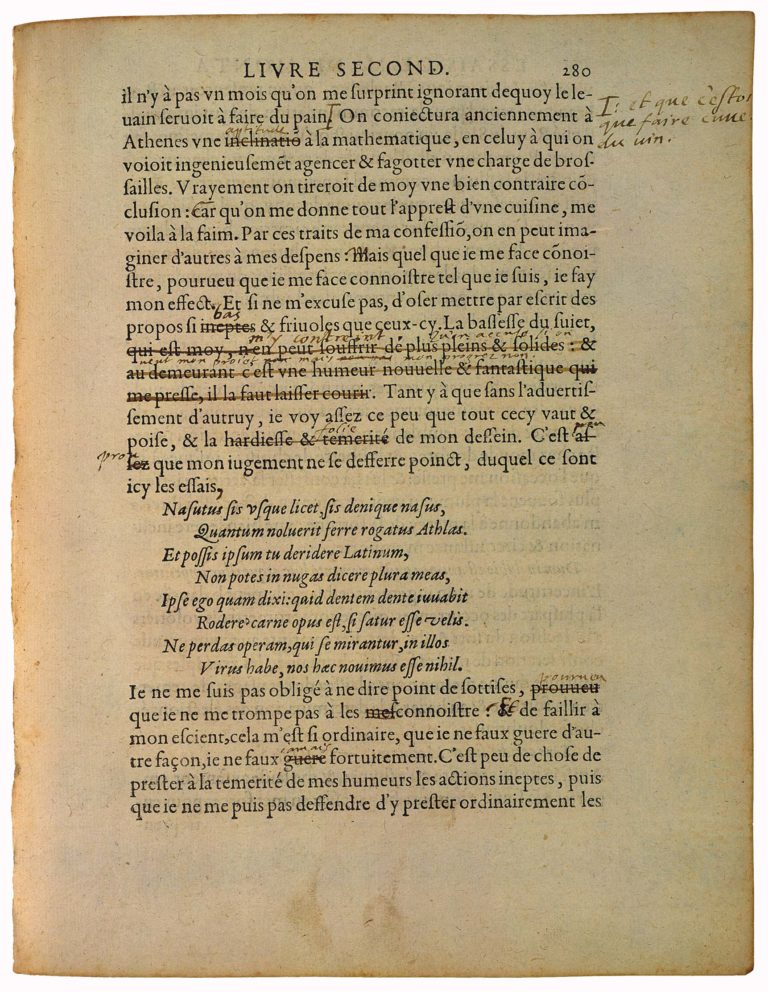 LIVRE SECOND. 280
il n'y à pas vn mois qu'on me ſurprint ignorant dequoy le le-
uain ſeruoit à faire du pain. On coniectura anciennement à
I: et que c'esto
que faire cuue
du vin.
aptitude
Athenes vne inclinatiō à la mathematique, en celuy à qui on
voioit ingenieuſemēt agencer & fagotter vne charge de broſ-
ſailles. Vrayement on tireroit de moy vne bien contraire cō-
cluſion : Car qu'on me donne tout l'appreſt d'vne cuiſine, me
voila à la faim. Par ces traits de ma confeſſiō, on en peut ima-
giner d'autres à mes deſpens : Mais quel que ie me face cōnoi-
ſtre, pourueu que ie me face connoiſtre tel que ie ſuis, ie fay
mon effect. Et ſi ne m'excuſe pas, d'oſer mettre par eſcrit des
bas
propos ſi ineptes & friuoles que ceux-cy. La baſſeſſe du ſuiet,
m'y contreint
qui est moy, n'en peut ſouffrir de plus pleins & ſolides : &
mon progrez non.
au demeurant c'est vne humeur nouuelle & fantaſtique qui
me preſſe, il la faut laiſſer courir. Tant y à que ſans l'aduertiſ-
ſement d'autruy, ie voy aſſez ce peu que tout cecy vaut &
folie
poiſe, & la hardieſſe & temerité de mon deſſein. C'eſt aſ-
prou
ſez que mon iugement ne ſe defferre poinct, duquel ce ſont
icy les eſſais,
Naſutus ſis vſque licet, ſis denique naſus,
Quantum noluerit ferre rogatus Athlas.
Et poſſis ipſum tu deridere Latinum,
Non potes in nugas dicere plura meas,
Ipſe ego quam dixi: quid dentem dente iuuabit
Rodere? carne opus eſt, ſi ſatur eſſe velis.
Ne perdas operam, qui ſe mirantur, in illos
Virus habe, nos hæc nouimus eſſe nihil.
pourueu
Ie ne me ſuis pas obligé à ne dire point de ſottiſes, prouueu
que ie ne me trompe pas à les meſconnoiſtre : Et de faillir à
mon eſcient, cela m'eſt ſi ordinaire, que ie ne faux guere d'au-
iamais
tre façon, ie ne faux guere fortuitement. C'eſt peu de choſe de
preſter à la temerité de mes humeurs les actions ineptes, puis
que ie ne me puis pas deffendre d'y preſter ordinairement les